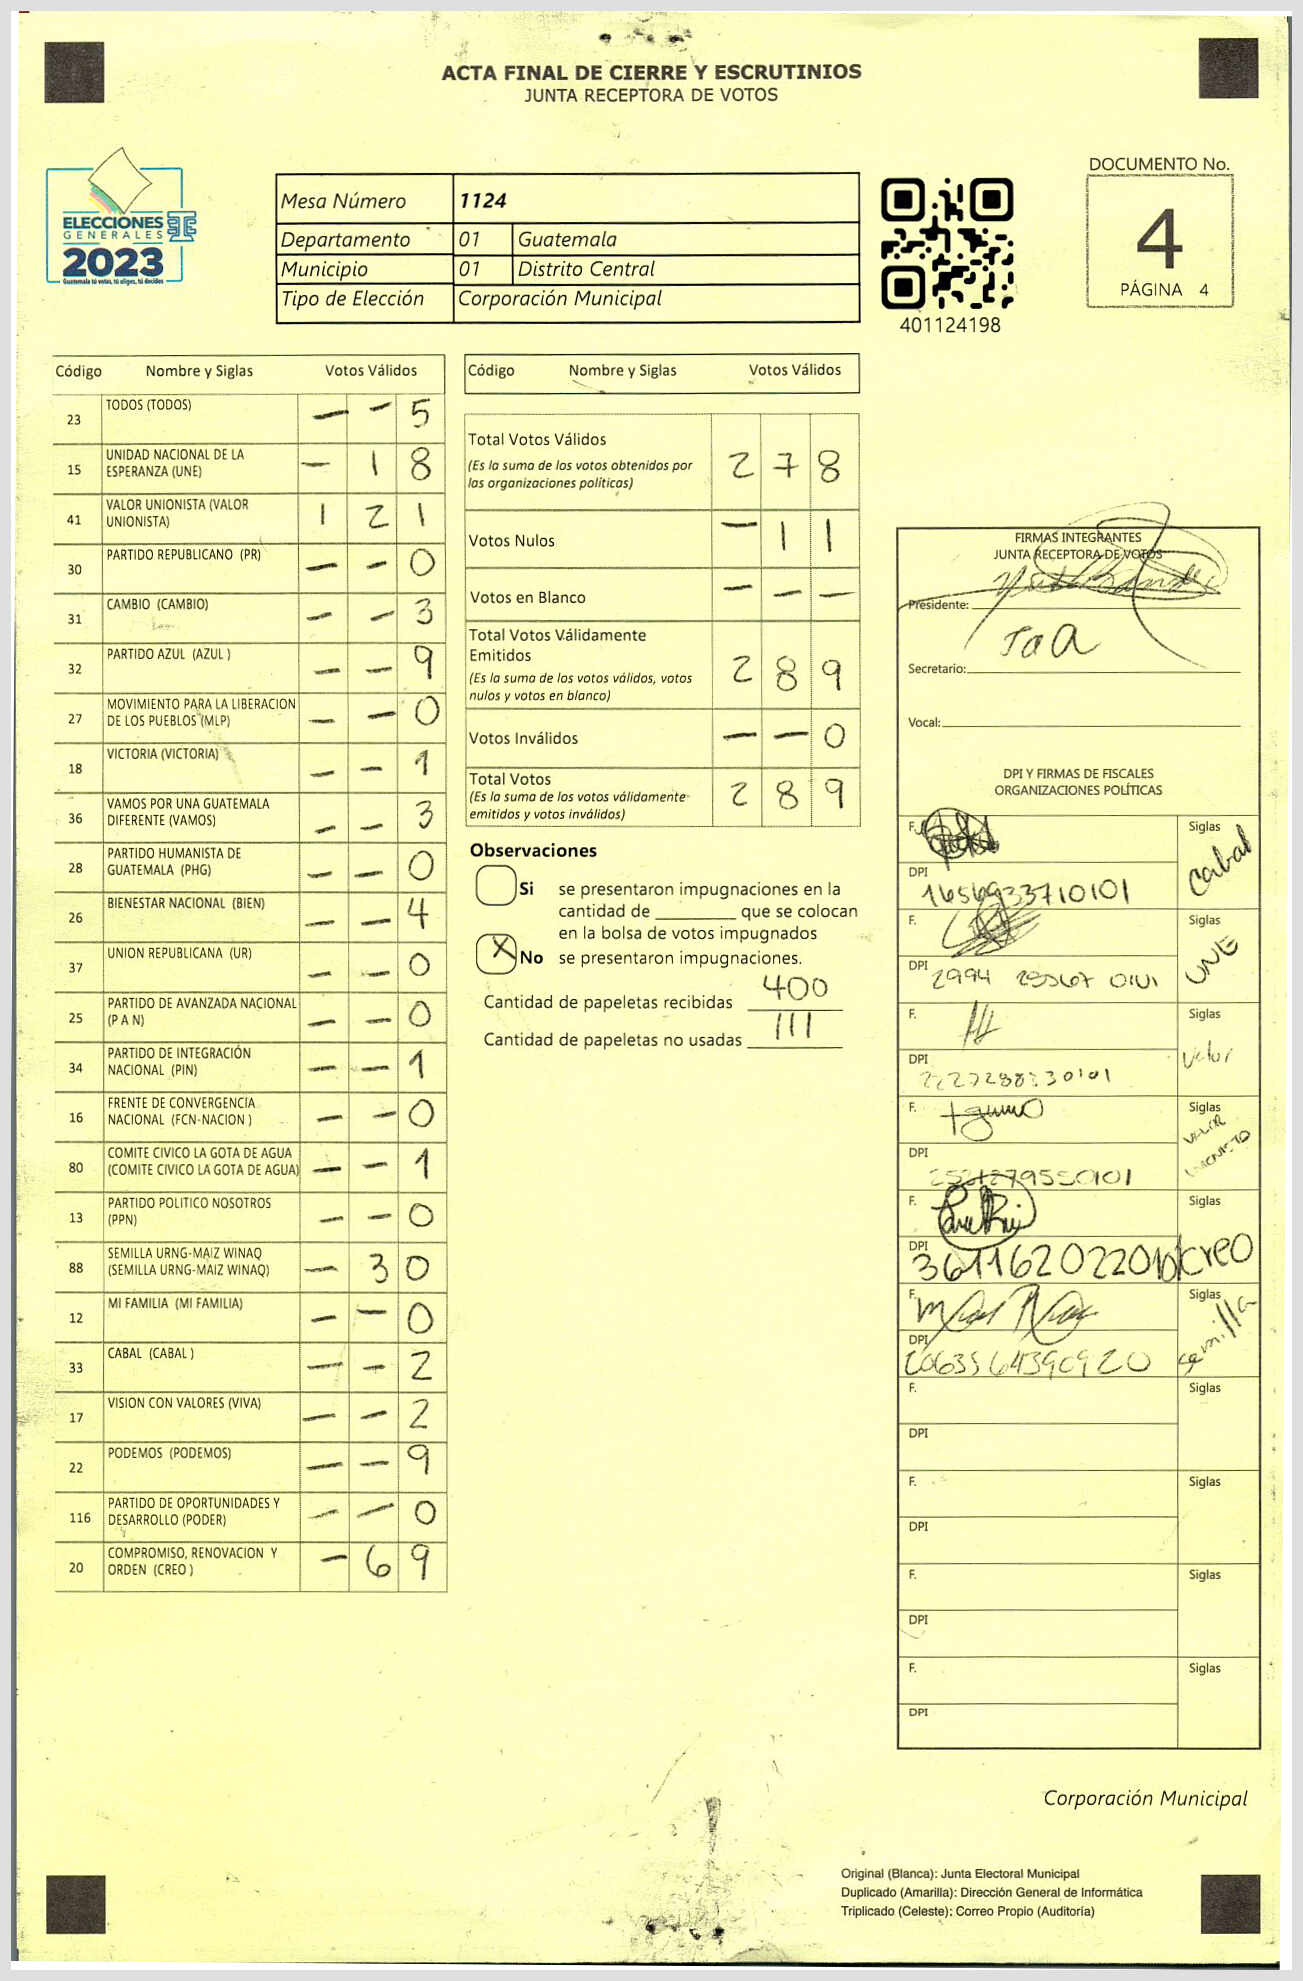 ACTA FINAL DE CIERRE Y ESCRUTINIOS
JUNTA RECEPTORA DE VOTOS
ELECCIONES
GENERALES
2023
Guatemala tú votas, tú eliges, tú decides
Mesa Número 1124
Departamento 01 Guatemala
Municipio 01 Distrito Central
Tipo de Elección Corporación Municipal
401124198
DOCUMENTO No.
4
PÁGINA 4
Código Nombre y Siglas Votos Válidos
23 TODOS (TODOS) — — 5
15 UNIDAD NACIONAL DE LA ESPERANZA (UNE) — 1 8
41 VALOR UNIONISTA (VALOR UNIONISTA) 1 2 1
30 PARTIDO REPUBLICANO (PR) — — 0
31 CAMBIO (CAMBIO) — — 3
32 PARTIDO AZUL (AZUL ) — — 9
27 MOVIMIENTO PARA LA LIBERACION DE LOS PUEBLOS (MLP) — — 0
18 VICTORIA (VICTORIA) — — 1
36 VAMOS POR UNA GUATEMALA DIFERENTE (VAMOS) — — 3
28 PARTIDO HUMANISTA DE GUATEMALA (PHG) — — 0
26 BIENESTAR NACIONAL (BIEN) — — 4
37 UNION REPUBLICANA (UR) — — 0
25 PARTIDO DE AVANZADA NACIONAL (P A N) — — 0
34 PARTIDO DE INTEGRACIÓN NACIONAL (PIN) — — 1
16 FRENTE DE CONVERGENCIA NACIONAL (FCN-NACION ) — — 0
80 COMITE CIVICO LA GOTA DE AGUA (COMITE CIVICO LA GOTA DE AGUA) — — 1
13 PARTIDO POLITICO NOSOTROS (PPN) — — 0
88 SEMILLA URNG-MAIZ WINAQ (SEMILLA URNG-MAIZ WINAQ) — 3 0
12 MI FAMILIA (MI FAMILIA) — — 0
33 CABAL (CABAL ) — — 2
17 VISION CON VALORES (VIVA) — — 2
22 PODEMOS (PODEMOS) — — 9
116 PARTIDO DE OPORTUNIDADES Y DESARROLLO (PODER) — — 0
20 COMPROMISO, RENOVACION Y ORDEN (CREO ) — 6 9
Código Nombre y Siglas Votos Válidos
Total Votos Válidos 2 7 8
(Es la suma de los votos obtenidos por
las organizaciones políticas)
Votos Nulos — 1 1
Votos en Blanco — — —
Total Votos Válidamente
Emitidos 2 8 9
(Es la suma de los votos válidos, votos
nulos y votos en blanco)
Votos Inválidos — — 0
Total Votos 2 8 9
(Es la suma de los votos válidamente
emitidos y votos inválidos)
Observaciones
Si se presentaron impugnaciones en la
cantidad de ________ que se colocan
en la bolsa de votos impugnados
X No se presentaron impugnaciones.
Cantidad de papeletas recibidas 400
Cantidad de papeletas no usadas 111
FIRMAS INTEGRANTES
JUNTA RECEPTORA DE VOTOS
Presidente:
Secretario:
Vocal:
DPI Y FIRMAS DE FISCALES
ORGANIZACIONES POLÍTICAS
F. Siglas Cabal
DPI
F. Siglas UNE
DPI
F. Siglas Valor
DPI
F. Siglas VALOR
DPI
F. Siglas
DPI Creo
F. Siglas semilla
DPI
F. Siglas
DPI
F. Siglas
DPI
F. Siglas
DPI
F. Siglas
DPI
Corporación Municipal
Original (Blanca): Junta Electoral Municipal
Duplicado (Amarilla): Dirección General de Informática
Triplicado (Celeste): Correo Propio (Auditoría)